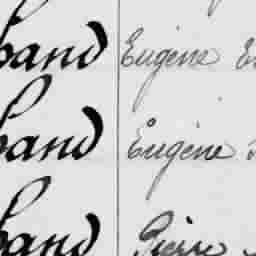 band Eugène
band Eugène
band Pierre